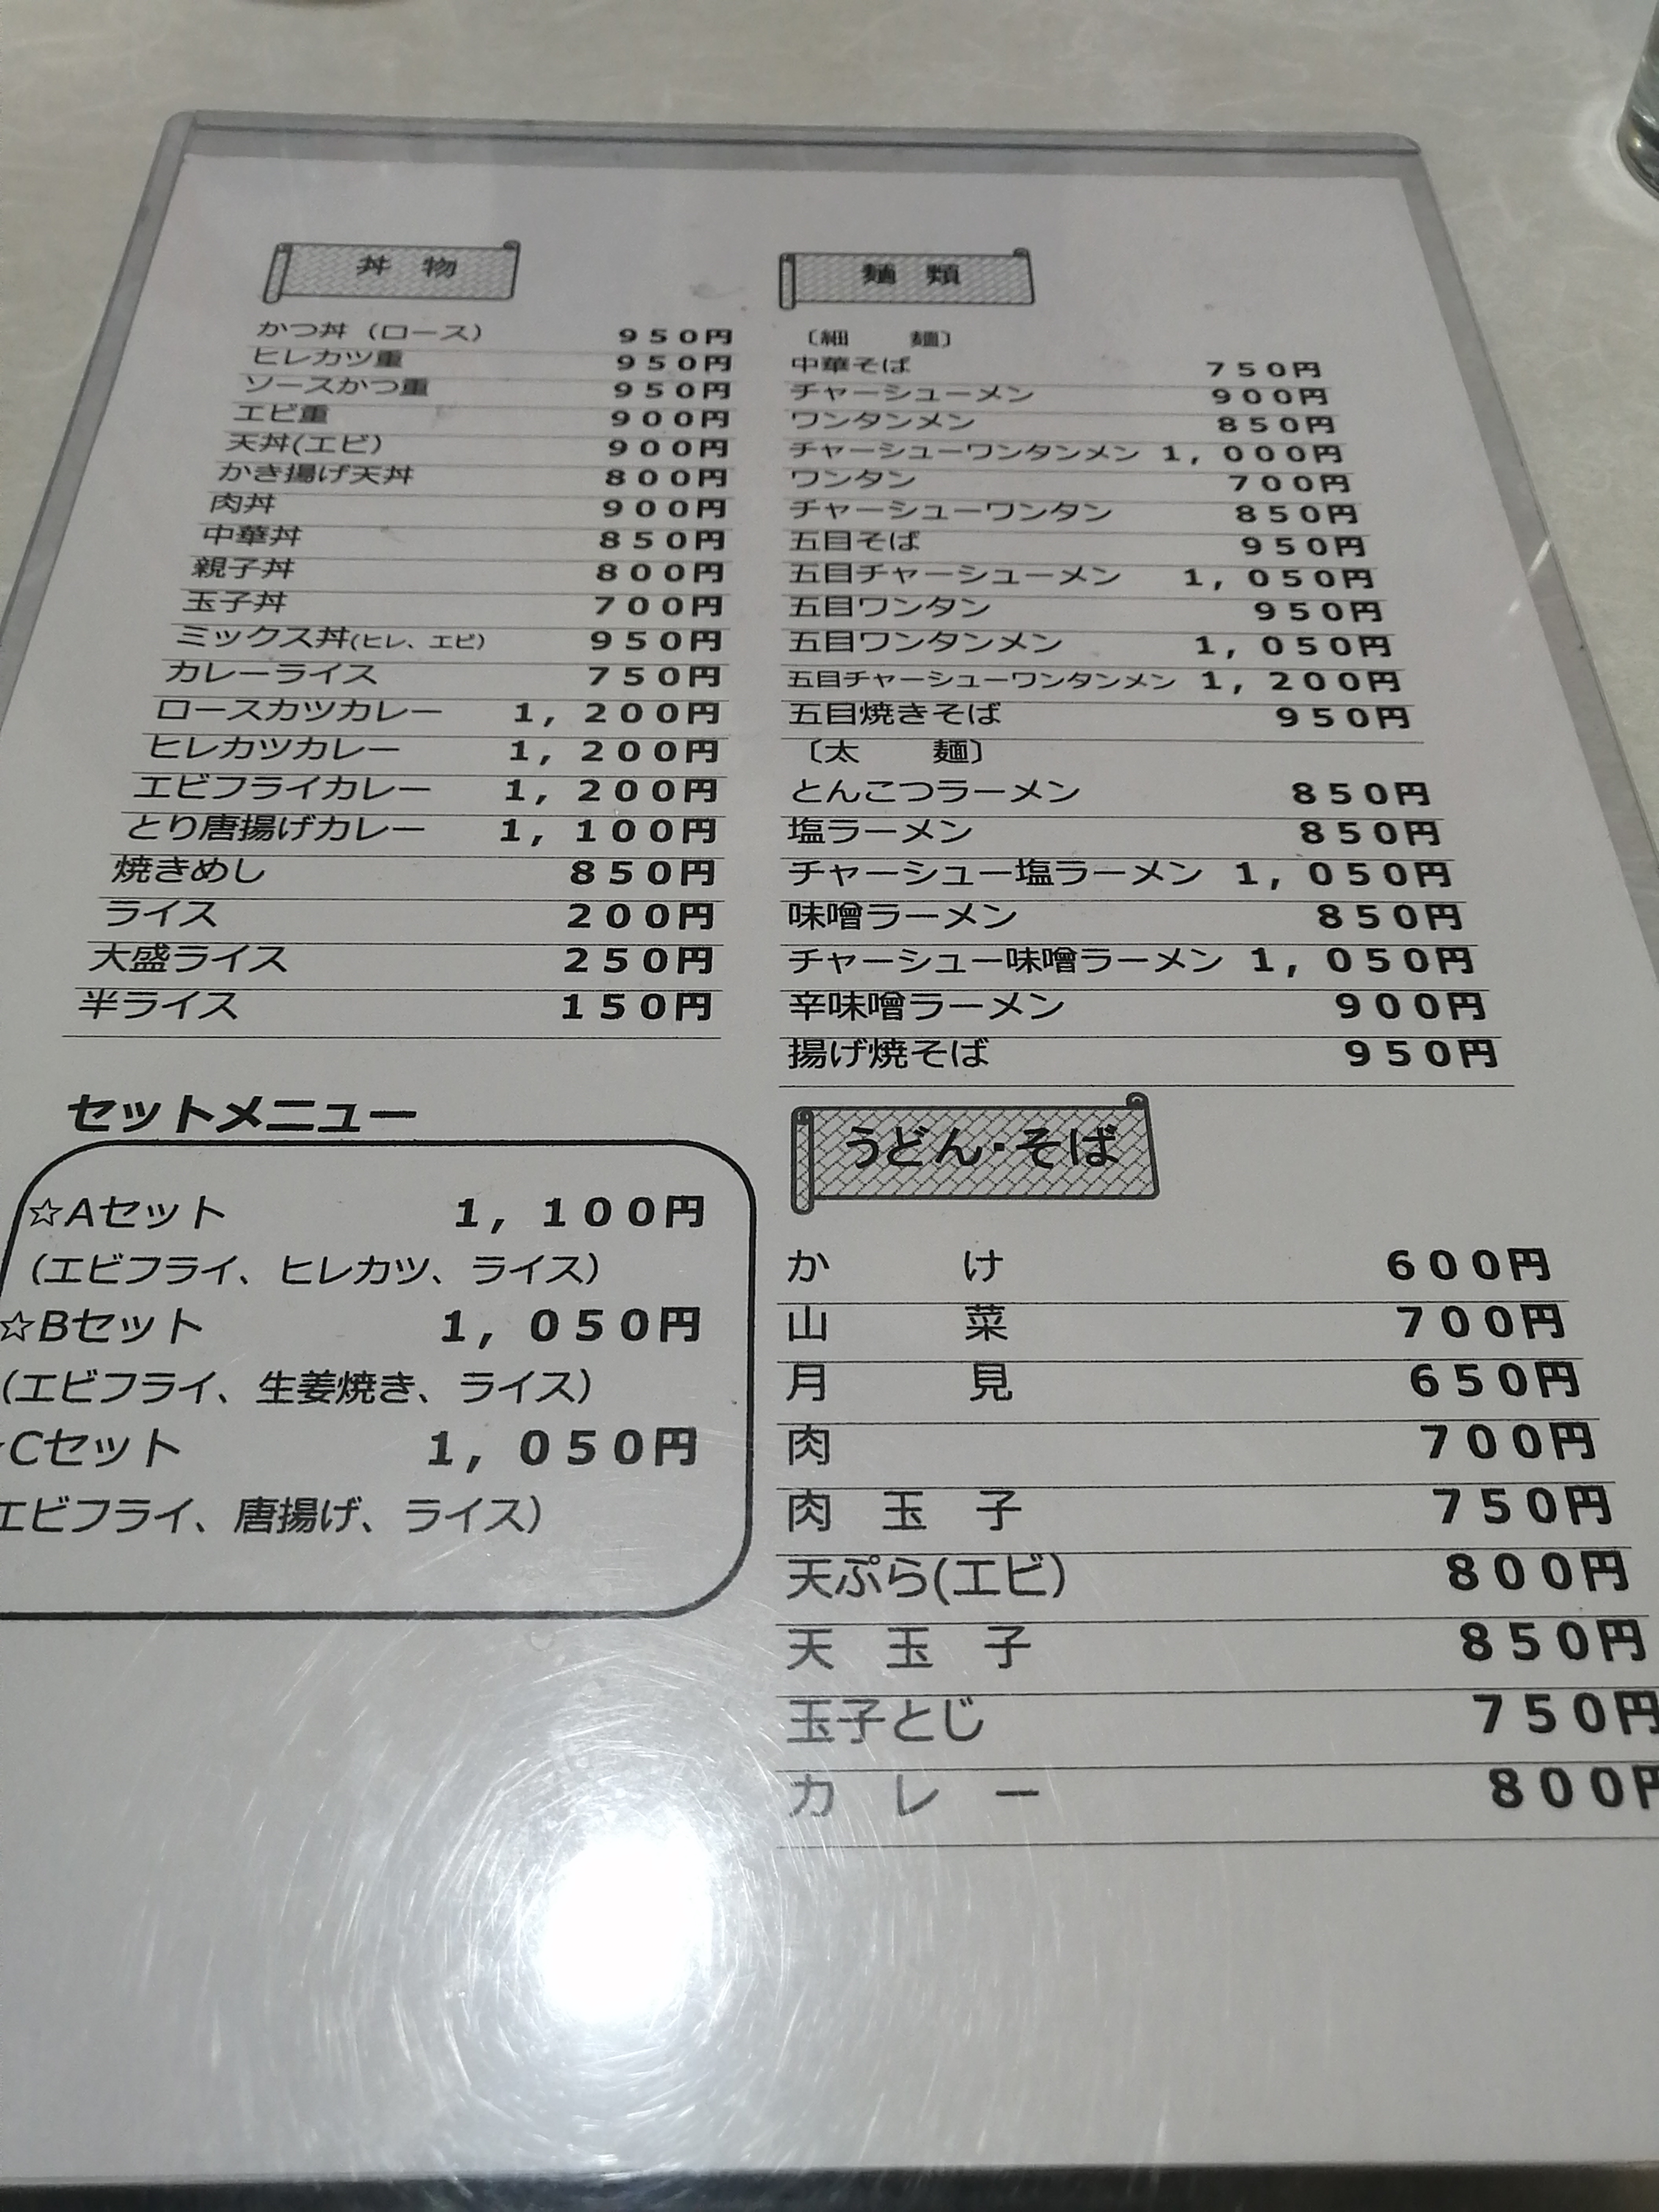 丼 物
かつ丼（ロース） 950円
ヒレカツ重 950円
ソースかつ重 950円
エビ重 900円
天丼(エビ) 900円
かき揚げ天丼 800円
肉丼 900円
中華丼 850円
親子丼 800円
玉子丼 700円
ミックス丼(ヒレ、エビ) 950円
カレーライス 750円
ロースカツカレー 1,200円
ヒレカツカレー 1,200円
エビフライカレー 1,200円
とり唐揚げカレー 1,100円
焼きめし 850円
ライス 200円
大盛ライス 250円
半ライス 150円
セットメニュー
☆Aセット 1,100円
（エビフライ、ヒレカツ、ライス）
☆Bセット 1,050円
（エビフライ、生姜焼き、ライス）
Cセット 1,050円
エビフライ、唐揚げ、ライス）
麺 類
〔細 麺〕
中華そば 750円
チャーシューメン 900円
ワンタンメン 850円
チャーシューワンタンメン 1,000円
ワンタン 700円
チャーシューワンタン 850円
五目そば 950円
五目チャーシューメン 1,050円
五目ワンタン 950円
五目ワンタンメン 1,050円
五目チャーシューワンタンメン 1,200円
五目焼きそば 950円
〔太 麺〕
とんこつラーメン 850円
塩ラーメン 850円
チャーシュー塩ラーメン 1,050円
味噌ラーメン 850円
チャーシュー味噌ラーメン 1,050円
辛味噌ラーメン 900円
揚げ焼そば 950円
うどん・そば
か け 600円
山 菜 700円
月 見 650円
肉 700円
肉 玉 子 750円
天ぷら(エビ) 800円
天 玉 子 850円
玉子とじ 750円
カ レ ー 800円